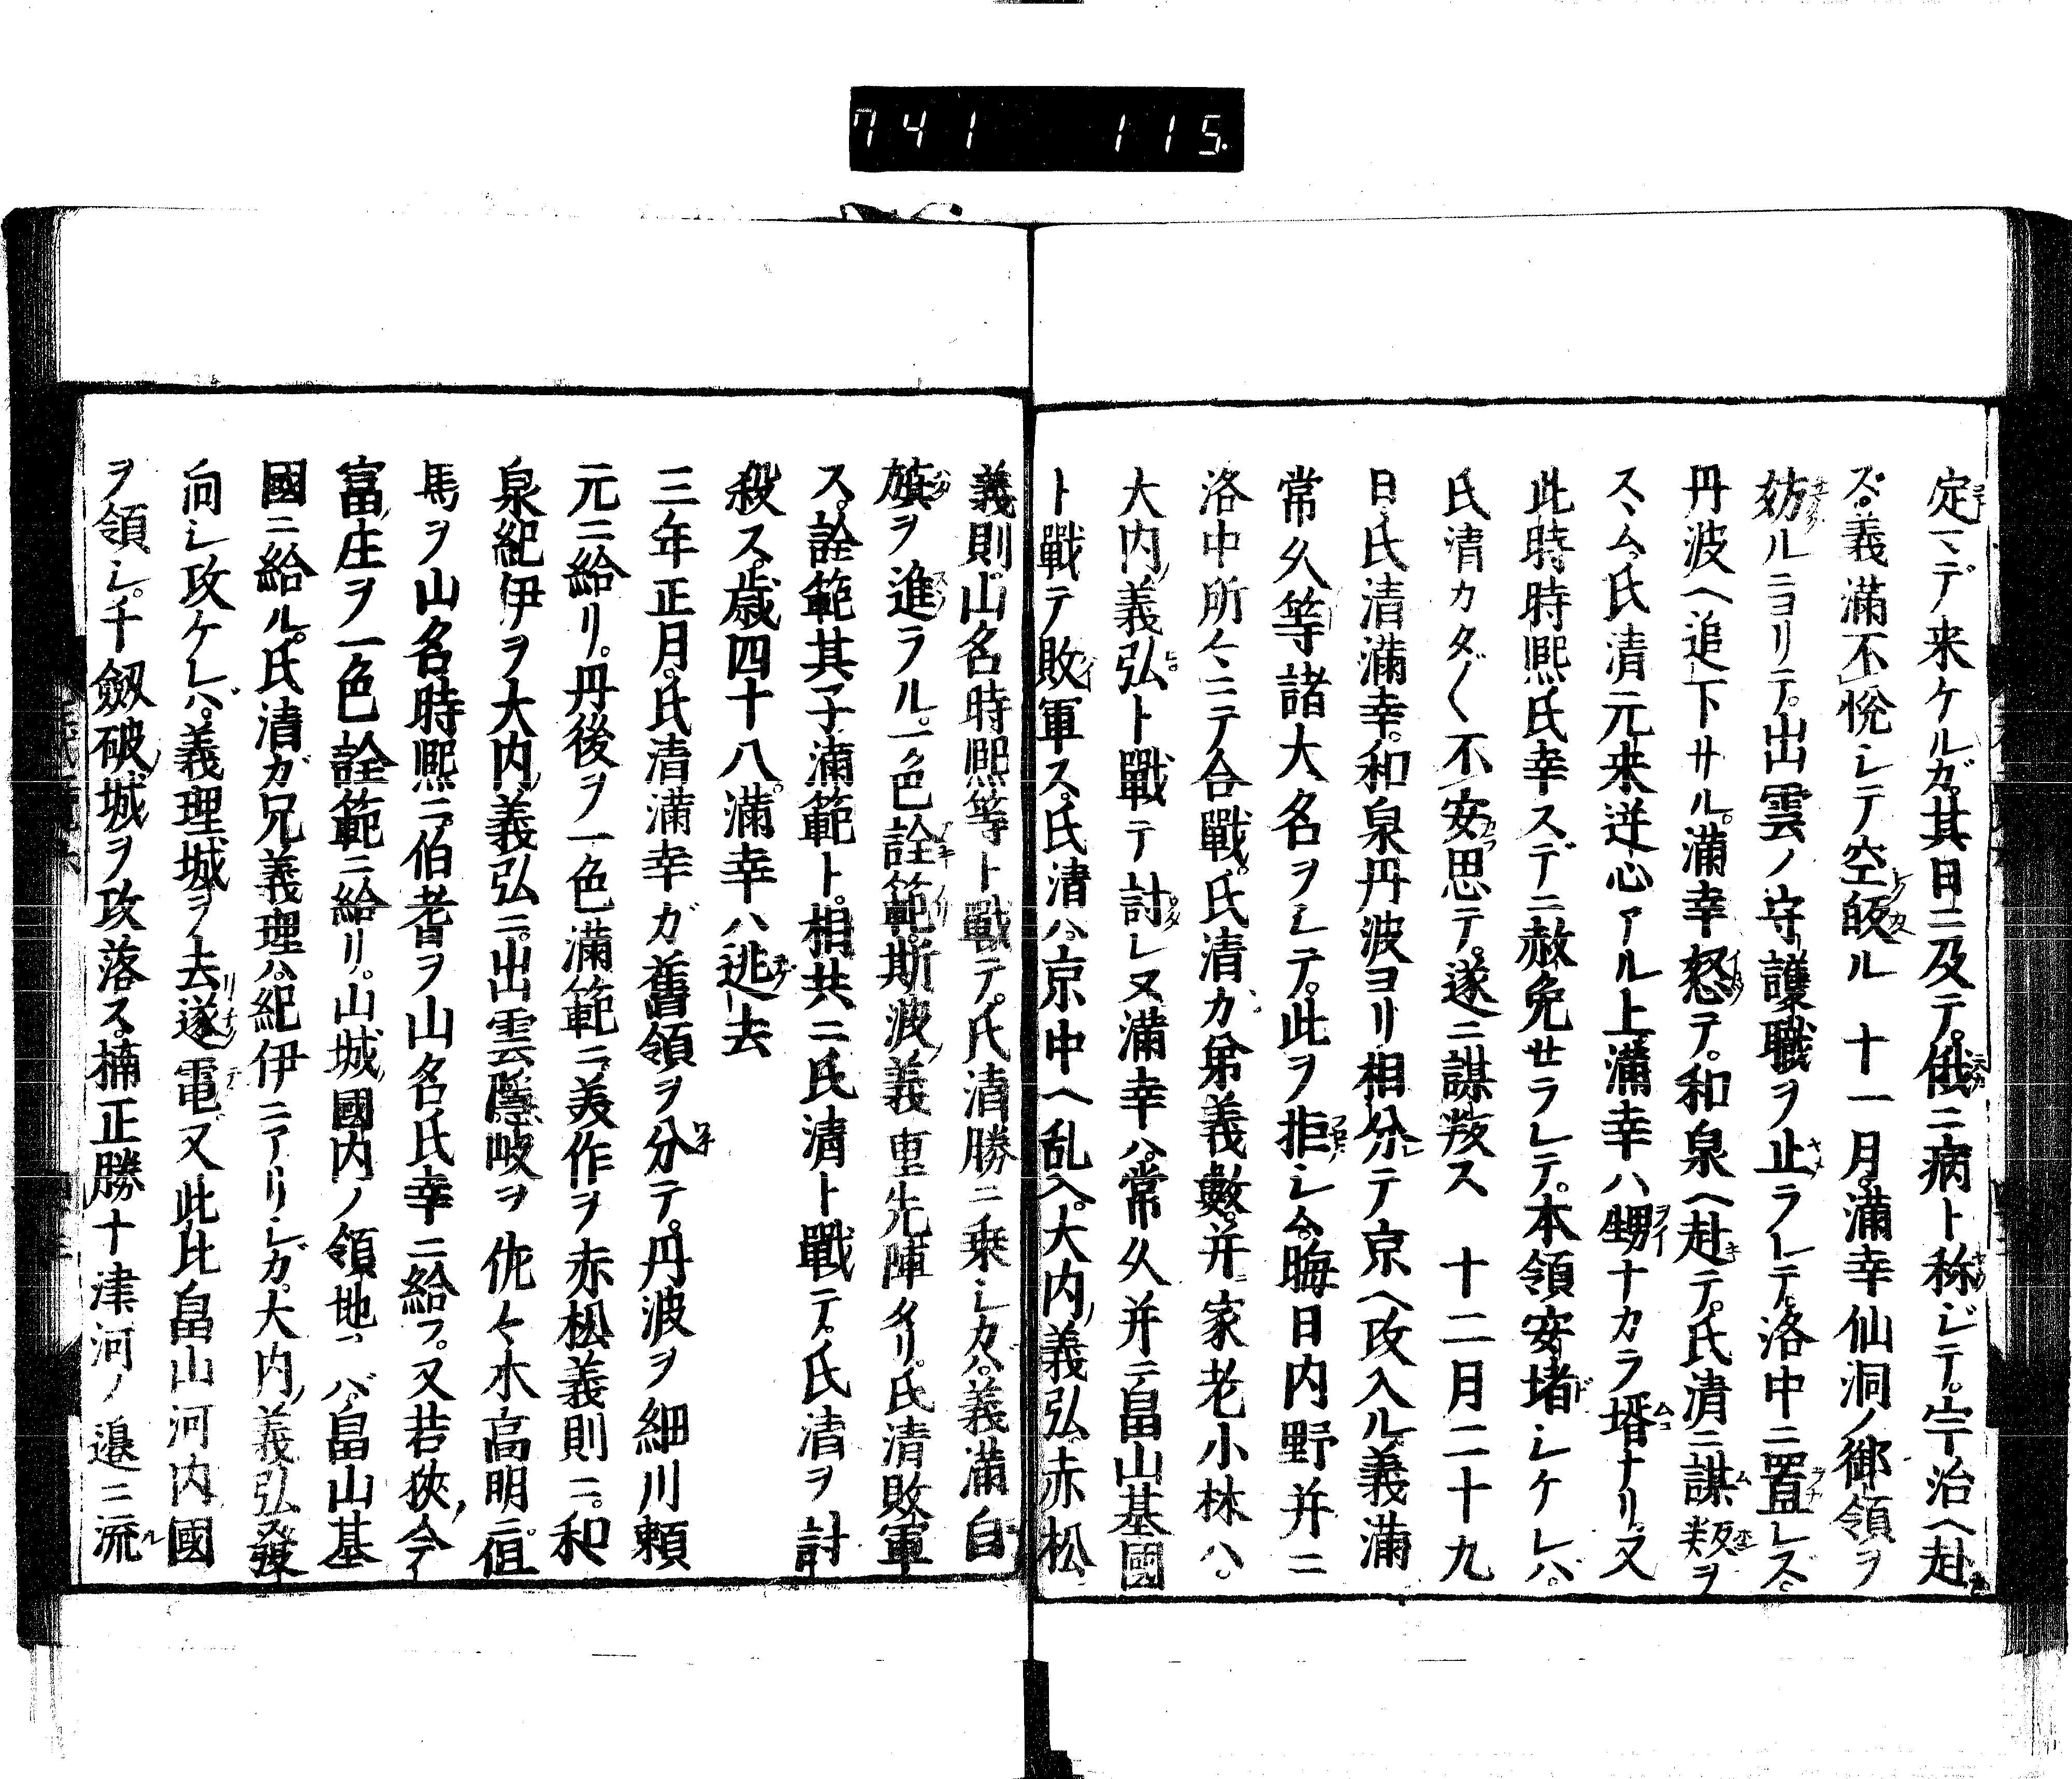 741 115
定マデ来ケルガ。其日ニ及テ。俄ニ病ト称ジテ。宇治ヘ赴
ズ。義満不悅シテ空皈ル 十一月。満幸仙洞ノ御領ヲ
妨ルニヨリテ。出雲ノ守護職ヲ止ラレテ。洛中ニ置レズ。
丹波ヘ追下サル。満幸怒テ。和泉ヘ赴テ。氏清ニ謀叛ヲ
スヽム。氏清元来逆心アル上。満幸ハ甥ナカラ壻ナリ。又
此時時熈氏幸スデニ赦免せラレテ。本領安堵シケレバ。
氏清カタ〴〵不安思テ。遂ニ謀叛ス 十二月二十九
日。氏清満幸。和泉丹波ヨリ相分テ京ヘ攻入ル。義満
常久等諸大名ヲシテ。此ヲ拒シム。晦日内野并ニ
洛中所々ニテ合戰。氏清カ弟義數。并家老小林ハ。
大内義弘ト戰テ討レヌ。満幸ハ。常久并テ畠山基國
ト戰テ敗軍ス。氏清ハ。京中ヘ乱入。大内義弘。赤松
義則。山名時熈等ト戰テ。氏清勝ニ乗シカバ。義満自
旗ヲ進ラル。一色詮範。斯波義重先陣タリ。氏清敗軍
ス。詮範其子満範ト。相共ニ氏清ト戰テ。氏清ヲ討
殺ス。歳四十八。満幸ハ逃去
三年正月。氏清満幸ガ舊領ヲ分テ。丹波ヲ細川頼
元ニ給リ。丹後ヲ一色満範ニ。美作ヲ赤松義則ニ。和
泉紀伊ヲ大内義弘ニ。出雲隱岐ヲ佐々木高明ニ。但
馬ヲ山名時熈ニ。伯耆ヲ山名氏幸ニ給フ。又若狹今
富庄ヲ一色詮範ニ給リ。山城國内ノ領地ヲバ。畠山基
國ニ給ル。氏清ガ兄義理ハ。紀伊ニアリシガ。大内義弘發
向シ攻ケレバ。義理城ヲ去遂電ス。又此比畠山河内國
ヲ領シ。千劔破城ヲ攻落ス。楠正勝十津河ノ邉ニ流